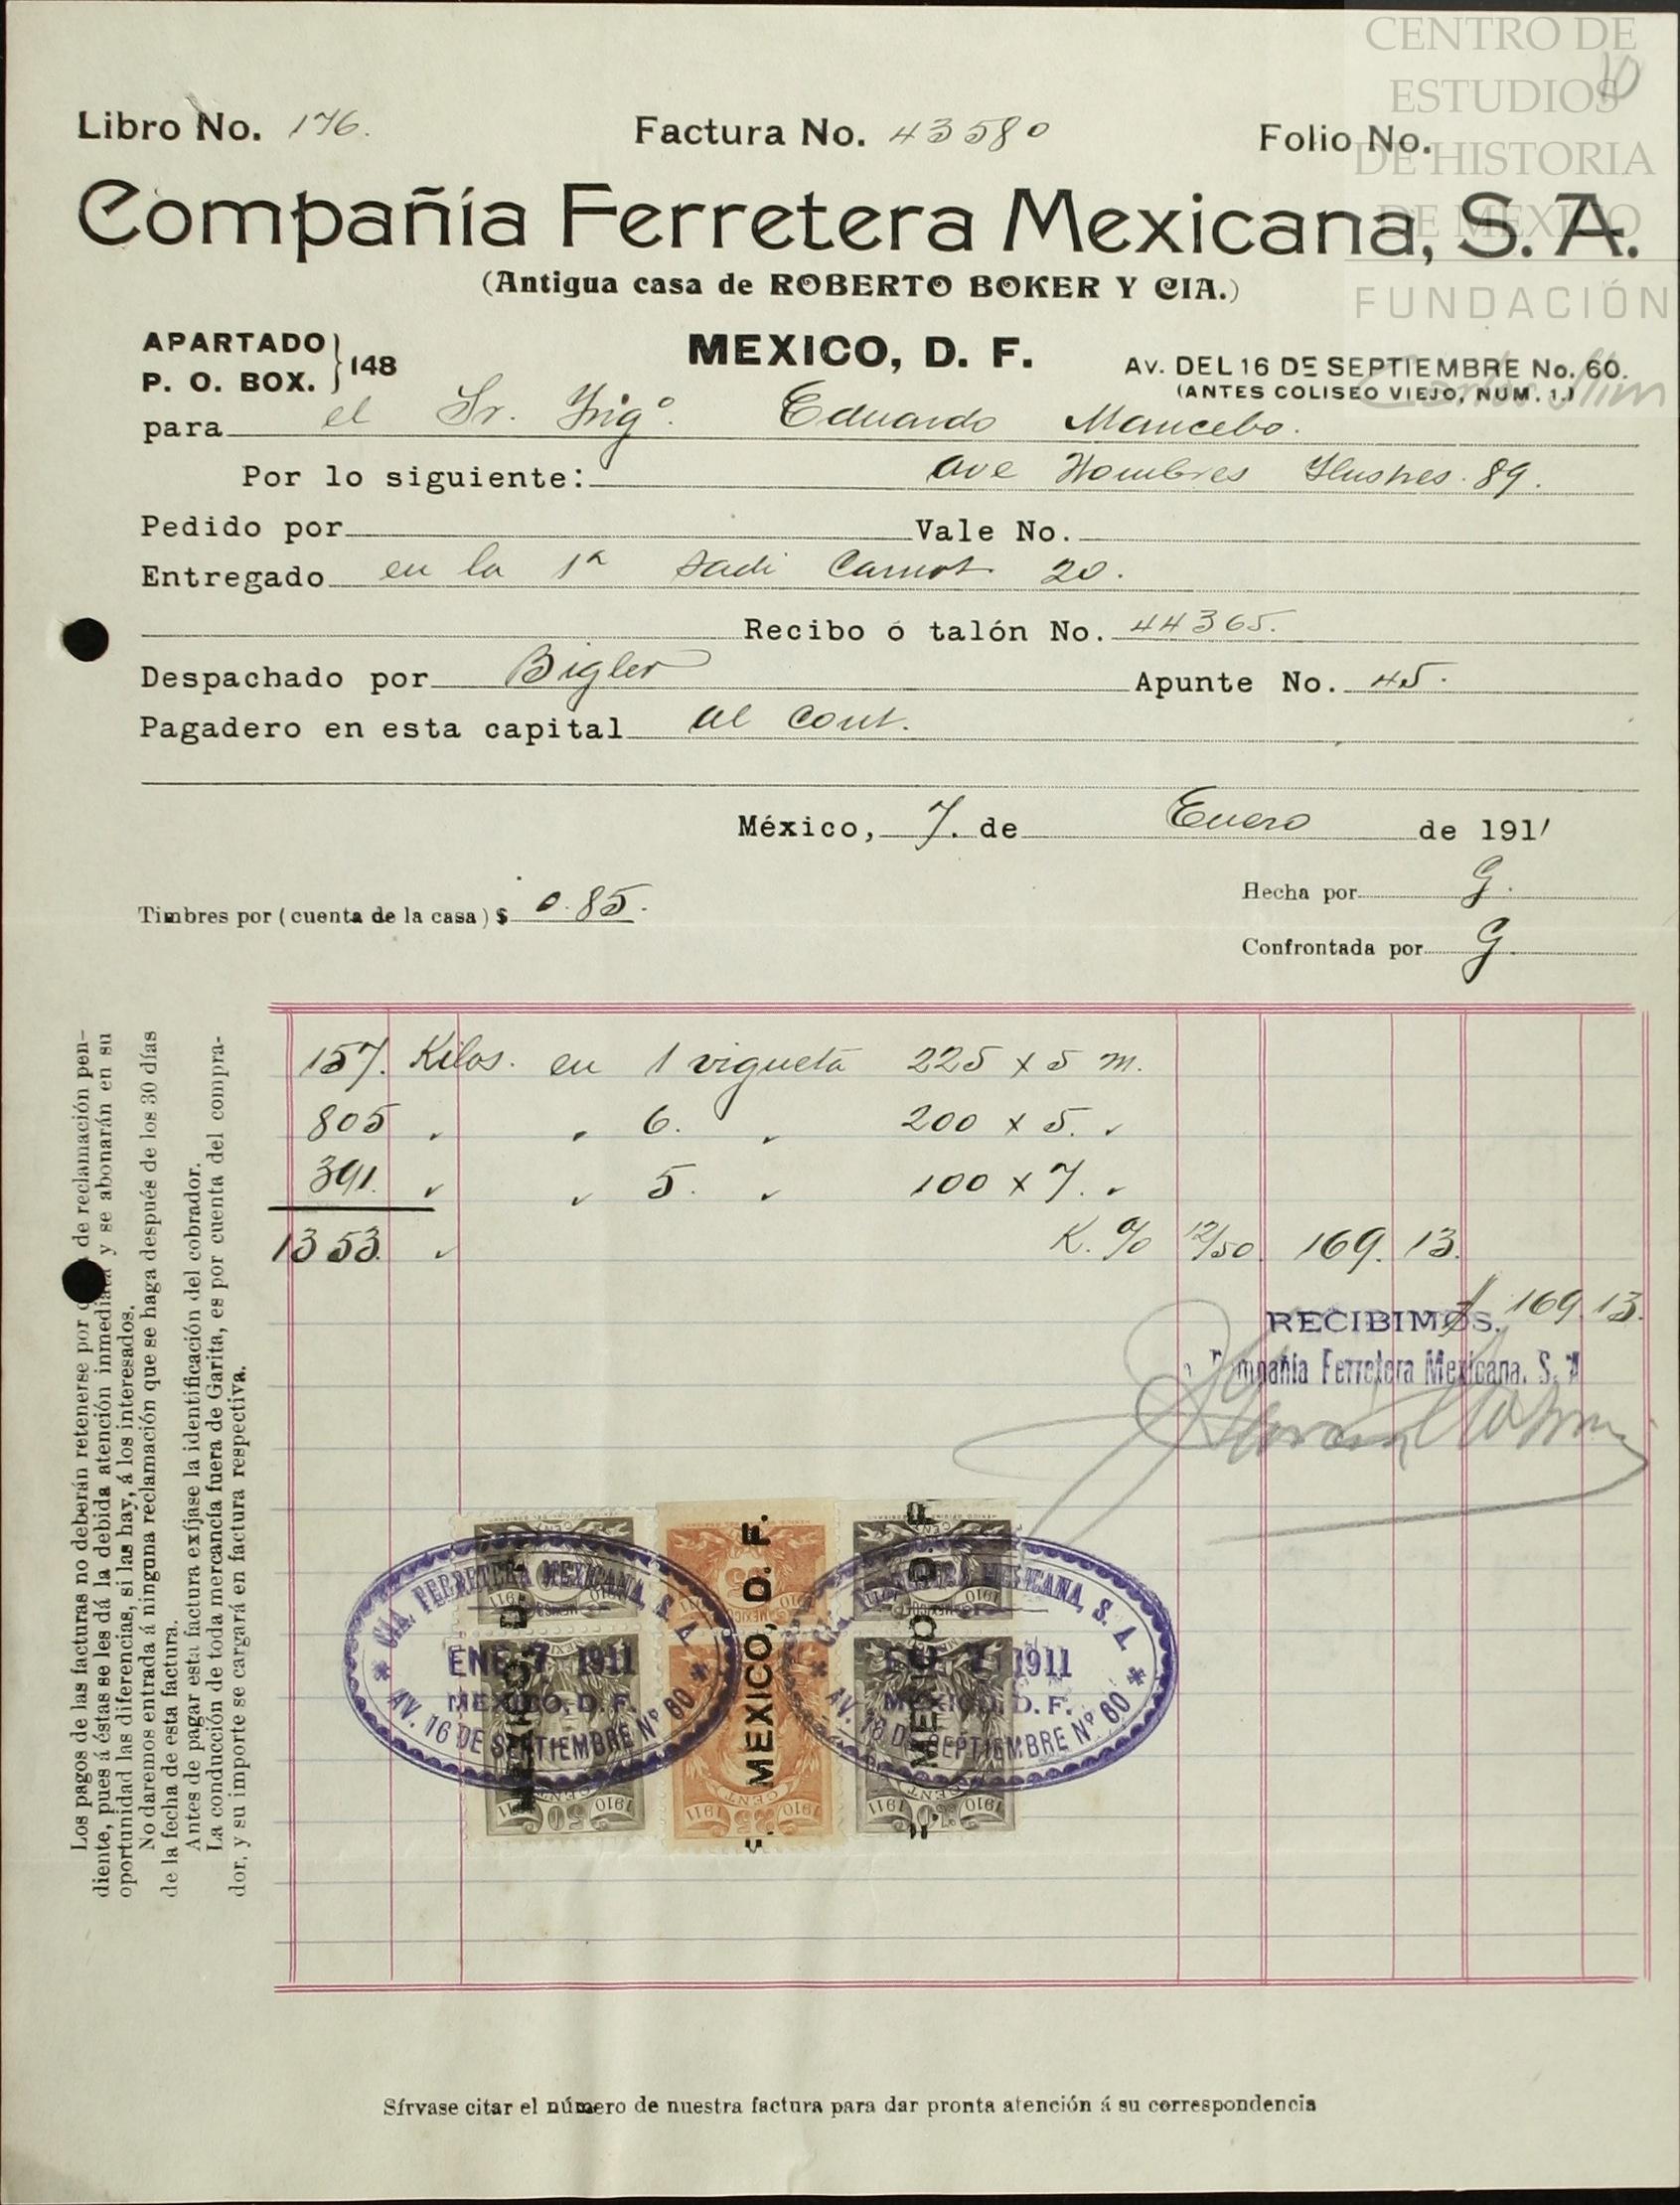 CENTRO DE
ESTUDIOS
DE HISTORIA
DE MEXICO
FUNDACIÓN
Carlos Slim
10
Libro No. 176.
Factura No. 43580
Folio No.
Compañía Ferretera Mexicana, S. A.
(Antigua casa de ROBERTO BOKER Y CIA.)
APARTADO
P. O. BOX. } 148
MEXICO, D. F.
Av. DEL 16 DE SEPTIEMBRE No. 60.
(ANTES COLISEO VIEJO, NUM. 1.)
para el Sr. Ing°. Eduardo Mancebo.
Por lo siguiente: Ave Hombres Ilustres. 89.
Pedido por Vale No.
Entregado en la 1a Sadi Carnot 20.
Recibo ó talón No. 44365.
Despachado por Bigler Apunte No. 45.
Pagadero en esta capital al cont.
México, 7. de Enero de 1911
Timbres por (cuenta de la casa) $ 0.85.
Hecha por G.
Confrontada por G.
157. Kilos. en 1 vigueta 225 x 5 m.
805 " " 6. " 200 x 5. "
391. " " 5. " 100 x 7. "
1353. " K. % 12/50. 169. 13.
RECIBIMOS. $ 169.13.
Compañia Ferretera Mexicana. S. A
CIA. FERRETERA MEXICANA, S. A.
ENE 7 1911
MEXICO, D. F.
AV. 16 DE SEPTIEMBRE Nº 60
MEXICO, D. F.
FERRETERA MEXICANA, S. A.
ENE 7 1911
MEXICO, D. F.
AV. 16 DE SEPTIEMBRE Nº 60
MEXICO, D. F.
1910 50 1911
1910 25 1911
1910 1911
Los pagos de las facturas no deberán retenerse por de reclamación pen-
diente, pues á éstas se les dá la debida atención inmediata y se abonarán en su
oportunidad las diferencias, si las hay, á los interesados.
No daremos entrada á ninguna reclamación que se haga después de los 30 días
de la fecha de esta factura.
Antes de pagar esta factura exíjase la identificación del cobrador.
La conducción de toda mercancía fuera de Garita, es por cuenta del compra-
dor, y su importe se cargará en factura respectiva.
Sírvase citar el número de nuestra factura para dar pronta atención á su correspondencia